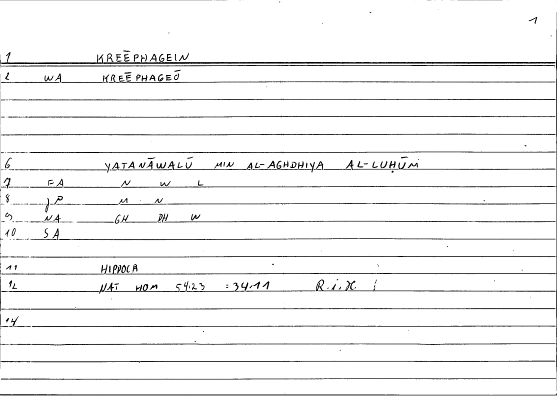 1
1 KREĒPHAGEIN
2 WA KREĒPHAGEŌ
6 YATANĀWALŪ MIN AL-AGHDHIYA AL-LUḤŪM
7 FA N W L
8 JP M N
9 NA GH DH W
10 SA
11 HIPPOCR
12 NAT HOM 54.23 =34.11
14